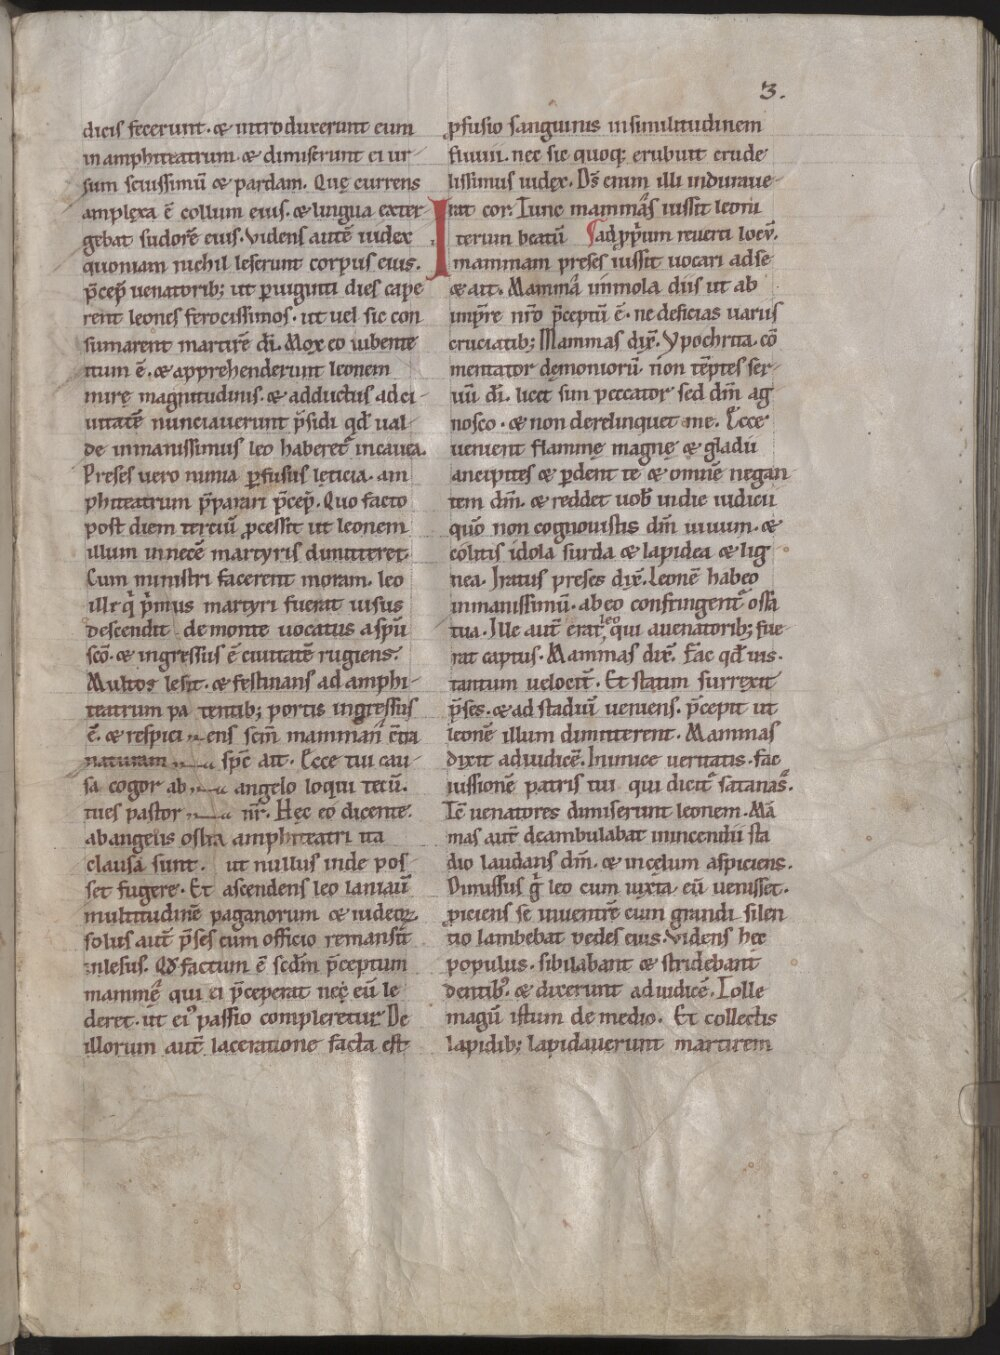 3.
dicis fecerunt· & introduxerunt eum
in amphiteatrum· & dimiserunt ei ur-
sum seuissimū & pardam. Quę currens
amplexa ē collum eius· & lingua exter
gebat sudorē eius. Videns autē iudex
quoniam nichil leserunt corpus eius.
p̄cep̄ uenatorib; ut p uiginti dies cape
rent leones ferocissimos· ut uel sic con
sumarent martirē dī. Mox eo iubente
itum ē· & apprehenderunt leonem
mirę magnitudinis· & adductus ad ci-
uitatē nunciauerunt p̄sidi qd̄ ual-
de inmanissimus leo haberet̄ in cauea.
Preses uero nimia pfusus lęticia· am
phiteatrum p̄parari p̄cep̄. Quo facto
post diem terciū ꝓcessit ut leonem
illum in necē martyris dimitteret.
Cum ministri facerent moram· leo
ille q̄ p̄mus martyri fuerat uisus
descendit de monte uocatus a spū
scō· & ingressus ē ciuitatē rugiens.
Multos lesit· & festinans ad amphi-
teatrum pa tentib; portis ingressus
ē· & respici ens scm̄ mamman̄ c̄tra
naturam spē ait. Ecce tui cau-
sa cogor ab angelo loqui tecū.
tues pastor nr̄. Hęc eo dicente.
ab angelis ostia amphiteatri ita
clausa sunt· ut nullus inde pos-
set fugere. Et ascendens leo laniauit
multitudinē paganorum & iudeoꝝ
solus aut̄ p̄ses cum officio remansit
inlesus. Qd̄ factum ē scd̄m p̄ceptum
mammę qui ei p̄ceperat nec eū lę
deret· ut ei' passio compleretur. De
illorum aut̄ laceratione facta est
ꝓfusio sanguinis in similitudinem
fluuii. nec sic quoq; erubuit crude
lissimus iudex. Ds̄ enim illi induraue-
rat cor. Tunc mammas iussit leoni
ad ꝓprium reuerti locū.
Iterum beatū
mammam preses iussit uocari ad se
& ait. Mamma immola diis ut ab
imp̄re nr̄o p̄ceptū ē· ne deficias uariis
cruciatib; Mammas dix̄. Ypochrita· cō
mentator dęmoniorū· non tēptes ser-
uū dī. licet sim peccator sed dm̄ ag
nosco· & non derelinquet me. Ecce
uenient flammę magnę & gladii
ancipites & pdent te & omnē negan
tem dm̄. & reddet uob̄ in die iudicii
quō non cognouistis dm̄ uiuum· &
colitis idola surda & lapidea & lig
nea. Iratus preses dix̄. Leonē habeo
inmanissimū· ab eo confringent̄ ossa
tua. Ille aut̄ erat leo qui a uenatorib; fue-
rat captus. Mammas dix̄. Fac qd̄ uis.
tantum uelocit̄. Et statim surrexit
p̄ses· & ad stadiū ueniens· p̄cepit ut
leonē illum dimitterent. Mammas
dixit ad iudicē. Inimice ueritatis· fac
iussionē patris tui qui dicit̄ satanas.
Tc̄ uenatores dimiserunt leonem. Mā
mas aut̄ deambulabat in incendii sta
dio laudans dm̄. & in celum aspiciens.
Dimissus ḡ leo cum iuxta eū uenisset.
ꝓiciens se in uentrē cum grandi silen
tio lambebat pedes eius. Videns hec
populus· sibilabant & stridebant
dentib'. & dixerunt ad iudicē. Tolle
magū istum de medio. Et collectis
lapidib; lapidauerunt martirem